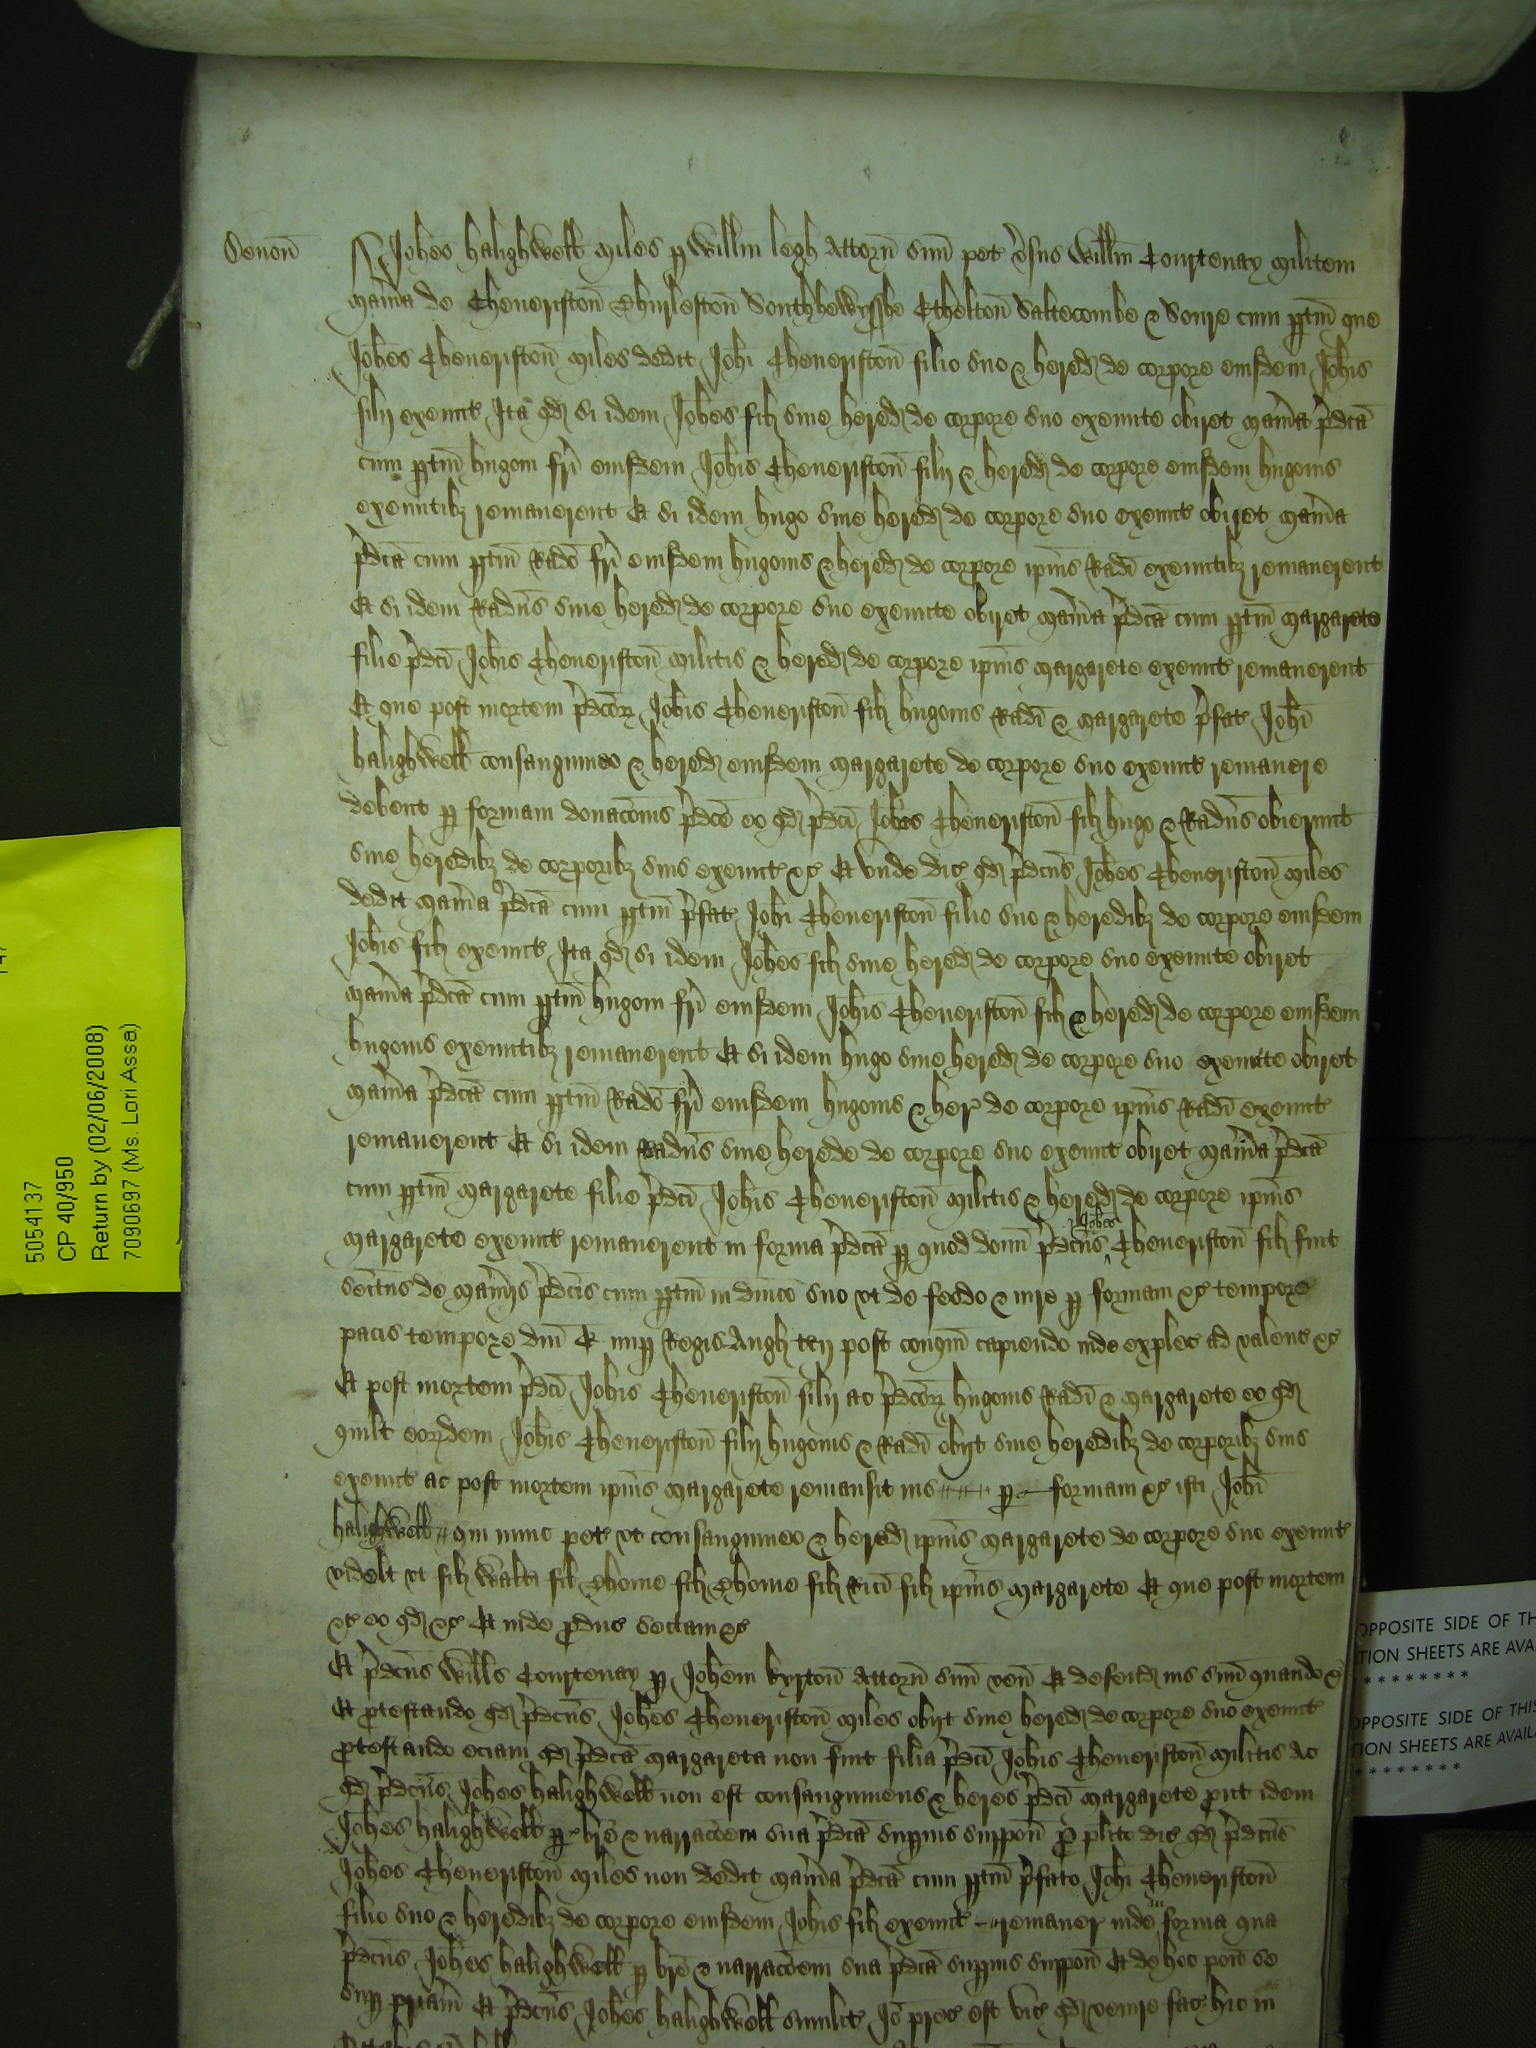 Devon̄
Joh̄es halighwell miles p Will̄m legh Attorn̄ suū pet v̄sus Will̄m Courtenay militem
man̄ia de Cheueriston̄ Thurleston̄ Southhewysshe Ethelton̄ Saltecombe & Soure cum p̱tin̄ que
Joh̄es Cheueriston̄ miles dedit Joh̄i Cheueriston̄ filio suo & hered de corpore eiusdem Joh̄is
filij exeunt Ita qd si idem Joh̄es fil sine hered de corpore suo exeunte obiret man̄ia p̄dcā
cum p̱tin̄ hugoni fr̄i eiusdem Joh̄is Cheueriston̄ filij & hered de corpore eiusdem hugonis
exeuntib3 remanerent Et si idem hugo sine hered de corpore suo exeunt obiret man̄ia
p̄dcā cum p̱tin̄ Rad̄o fr̄i eiusdem hugonis & hered de corpore ip̄ius Rad̄i exeuntib3 remanerent
Et si idem Rad̄us sine hered de corpore suo exeunte obiret man̄ia p̄dcā cum p̱tin̄ Margarete
filie p̄dcī Joh̄is Cheueriston̄ militis & hered de corpore ip̄ius Margarete exeunt remanerent
Et que post mortem p̄dcōr Joh̄is Cheueriston̄ fil hugonis Rad̄i & Margarete p̄fat Joh̄i
halighwell consanguineo & hered eiusdem Margarete de corpore suo exeunt remanere
debent p formam donacōnis p̄dcē eo qd p̄dcī Joh̄es Cheueriston̄ fil hugo & Rad̄us obierunt
sine heredib3 de corporib3 suis exeunt &c Et vnde dic qd p̄dcūs Joh̄es Cheueriston̄ miles
dedit man̄ia p̄dcā cum p̱tin̄ p̄fat Joh̄i Cheueriston̄ filio suo & heredib3 de corpore eiusdem
Joh̄is fil exeunt Ita qd si idem Joh̄es fil sine hered de corpore suo exeunte obiret
man̄ia p̄dcā cum p̱tin̄ hugoni fr̄i eiusdem Joh̄is Cheueriston̄ fil & hered de corpore eiusdem
hugonis exeuntib3 remanerent Et si idem hugo sine hered de corpore suo exeunte obiret
man̄ia p̄dcā cum p̱tin̄ Rad̄o fr̄i eiusdem hugonis & her de corpore ip̄ius Rad̄i exeunt
remanerent Et si idem Rad̄us sine herede de corpore suo exeunt obiret man̄ia p̄dcā
cum p̱tin̄ Margarete filie p̄dcī Joh̄is Cheueriston̄ militis & hered de corpore ip̄ius
Margarete exeunt remanerent in forma p̄dcā p quod donū p̄dcūs Joh̄es Cheueriston̄ fil fuit
sei̅tus de man̄ijs p̄dcīs cum p̱tin̄ in dn̄ico suo vt de feodo & iure p formam &c tempore
pacis tempore dn̄i E nup Regis Angl tcij post conq̄m capiendo inde explec ad valenc &c
Et post mortem p̄dcī Joh̄is Cheueriston̄ filij ac p̄dcōr hugonis Rad̄i & Margarete eo qd
quilt eorundem Joh̄is Cheueriston̄ filij hugonis & Rad̄i obijt sine heredib3 de corporib3 suis
exeunt ac post mortem ip̄ius Margarete remansit ius p formam &c isti Joh̄i
halighwell qui nunc pet vt consanguineo & hered ip̄ius Margarete de corpore suo exeunt
videlt vt fil Walt̄i fil Thome fil Thome fil Ric̄i fil ip̄ius Margarete Et que post mortem
&c eo qd &c Et inde p̱duc sectam &c
Et p̄dcūs Will̄s Courtenay p Joh̄em kyrton̄ Attorn̄ suū ven̄ Et defend ius suū quando &c
Et p̱testando qd p̄dcūs Joh̄es Cheueriston̄ miles obijt sine hered de corpore suo exeunt
p̱testando eciam qd p̄dcā Margareta non fuit filia p̄dcī Joh̄is Cheueriston̄ militis Ac
qd p̄dcūs Joh̄es halighwell non est consanguineus & heres p̄dcē Margarete p̱ut idem
Joh̄es halighwell p br̄e & narracōem sua p̄dcā supius suppon̄ p̱ pl̄ito dic qd p̄dcūs
Joh̄es Cheueriston̄ miles non dedit man̄ia p̄dcā cum p̱tin̄ p̄fato Joh̄i Cheueriston̄
filio suo & heredib3 de corpore eiusdem Joh̄is fil exeunt remaner inde in forma qua
p̄dcūs Joh̄es halighwell p br̄e & narracōem sua p̄dcā supius suppon̄ Et de hoc pon̄ se
sup pr̄iam Et p̄dcūs Joh̄es halighwell similit Iō prec est vic qd venire fac hic in
5054137
CP 40/950
Return by (02/06/2008)
7090697 (Ms. Lori Assa)
OPPOSITE SIDE OF TH
TION SHEETS ARE AVA
* * * * * * * *
OPPOSITE SIDE OF THIS
TION SHEETS ARE AVAIL
* * * * * * * *